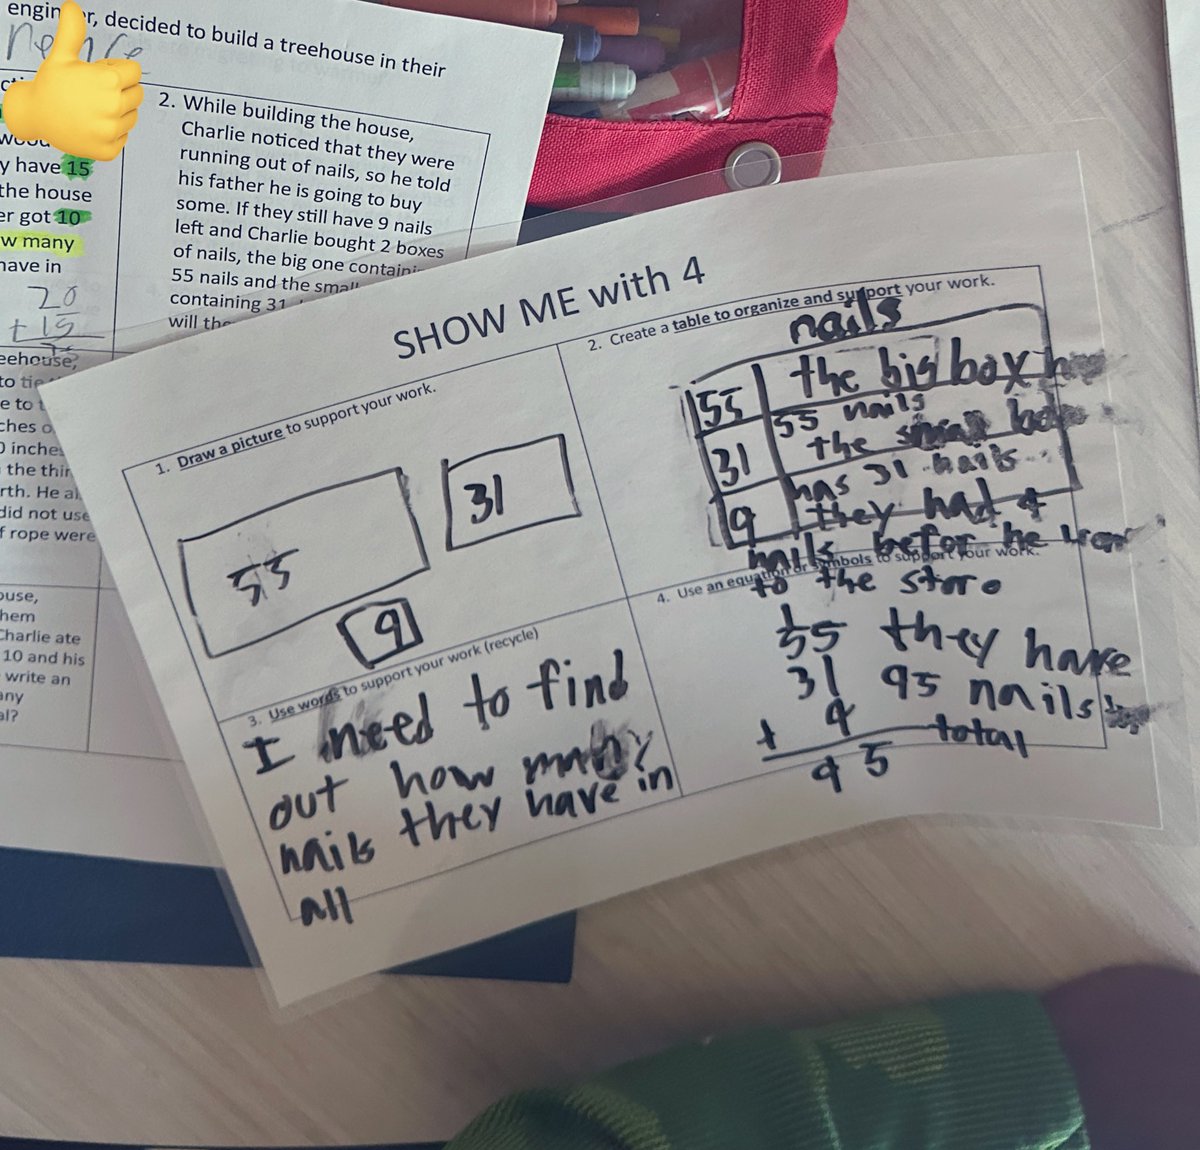 engin r, decided to build a treehouse in their
y have 15
the house
er got 10
w many
have in
20
+ 15
eehouse,
to tie
e to t
ches o
0 inche
the thir
rth. He al
did not use
f rope were
ouse,
hem
Charlie ate
10 and his
write an
any
al?
2. While building the house,
Charlie noticed that they were
running out of nails, so he told
his father he is going to buy
some. If they still have 9 nails
left and Charlie bought 2 boxes
of nails, the big one containi
55 nails and the small
containing 31
will the
SHOW ME with 4
1. Draw a picture to support your work.
55
31
9
2. Create a table to organize and support your work.
nails
55 the big box
55 nails
31 the small
has 31 nails
9 they had 9
nails befor he
to the store
3. Use words to support your work (recycle)
I need to find
out how many
nails they have in
all
4. Use an equation or symbols to support your work.
1
55 they have
31 95 nails
+ 9 total
95